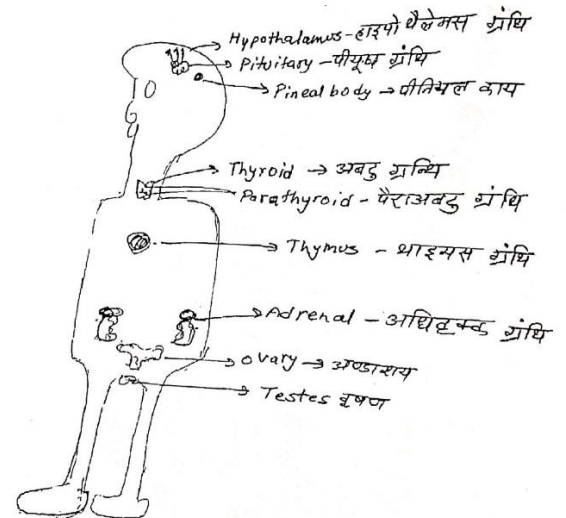 Hypothalamus - हाइपोथैलेमस ग्रंथि
Pituitary - पीयूष ग्रंथि
Pineal body → पीनियल काय
Thyroid → अवटु ग्रन्थि
Parathyroid - पैराअवटु ग्रंथि
Thymus - थाइमस ग्रंथि
Adrenal - अधिवृक्क ग्रंथि
ovary → अण्डाशय
Testes वृषण